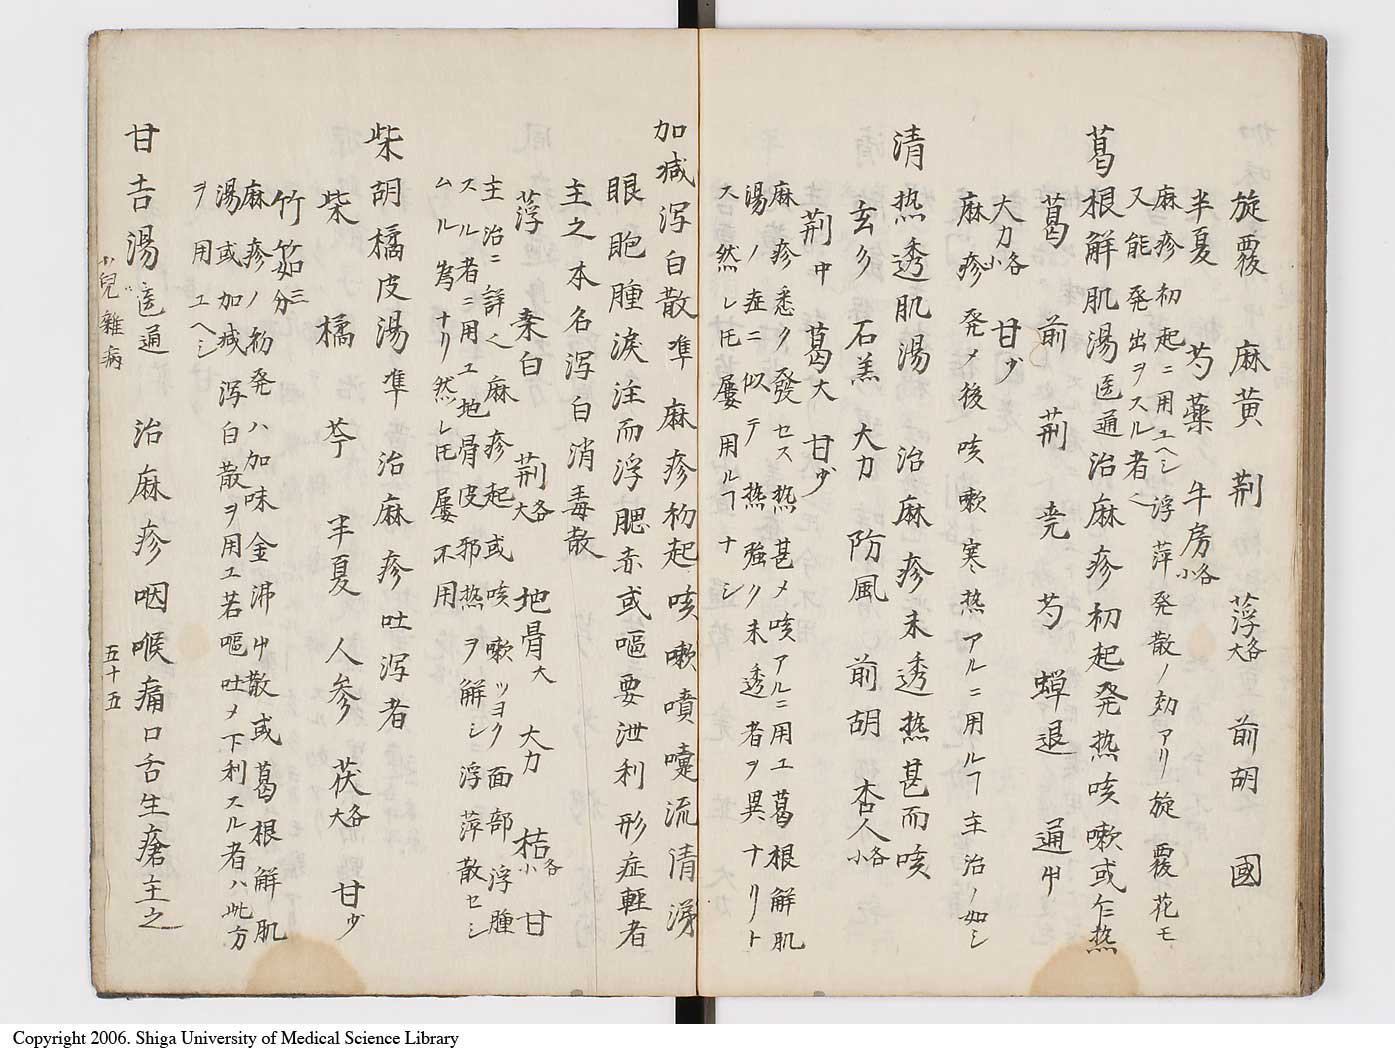 旋覆 麻黄 荆 莩大各 前胡 國
半夏 芍藥 牛房小各
麻疹初起ニ用ユヘシ浮萍発散ノ効アリ旋覆花モ
又能発出ヲスル者也
葛根解肌湯医通治麻疹初起発热咳嗽或乍热
葛 前 荊 芍 蝉退 通中
大力小各 甘少
麻疹発メ後咳嗽寒热アルニ用ルヿ主治ノ如シ
清热透肌湯 治麻疹未透热甚而咳
玄多 石羔 大力 防風 前胡 杏人小各
荆中 葛大 甘少
麻疹悉ク發セス热甚メ咳アルニ用ユ葛根解肌
湯ノ症ニ似テ热強ク未透者ヲ異ナリト
ス然レ𪜈屢用ルヿナシ
加减泻白散準 麻疹初起咳嗽噴嚏流清涕
眼胞腫淚注而浮腮赤或嘔要泄利形症軽者
主之本名泻白消毒散
莩 桒白 荆大各 地骨大 大力 桔小各 甘
主治ニ詳也麻疹起或咳嗽ツヨク面部浮腫
スル者ニ用ユ地骨皮邪热ヲ解シ浮萍散セシ
ムル為ナリ然レ𪜈屢不用
柴胡橘皮湯準 治麻疹吐泻者
柴 橘 芩 半夏 人参 茯大各 甘少
竹筎三分
麻疹ノ初発ハ加味金沸中散或葛根解肌
湯或加减泻白散ヲ用ユ若嘔吐メ下利スル者ハ此方
ヲ用ユヘシ
甘吉湯医通 治麻疹咽喉痛口舌生瘡主之
小兒雜病
五十五
Copyright 2006. Shiga University of Medical Science Library